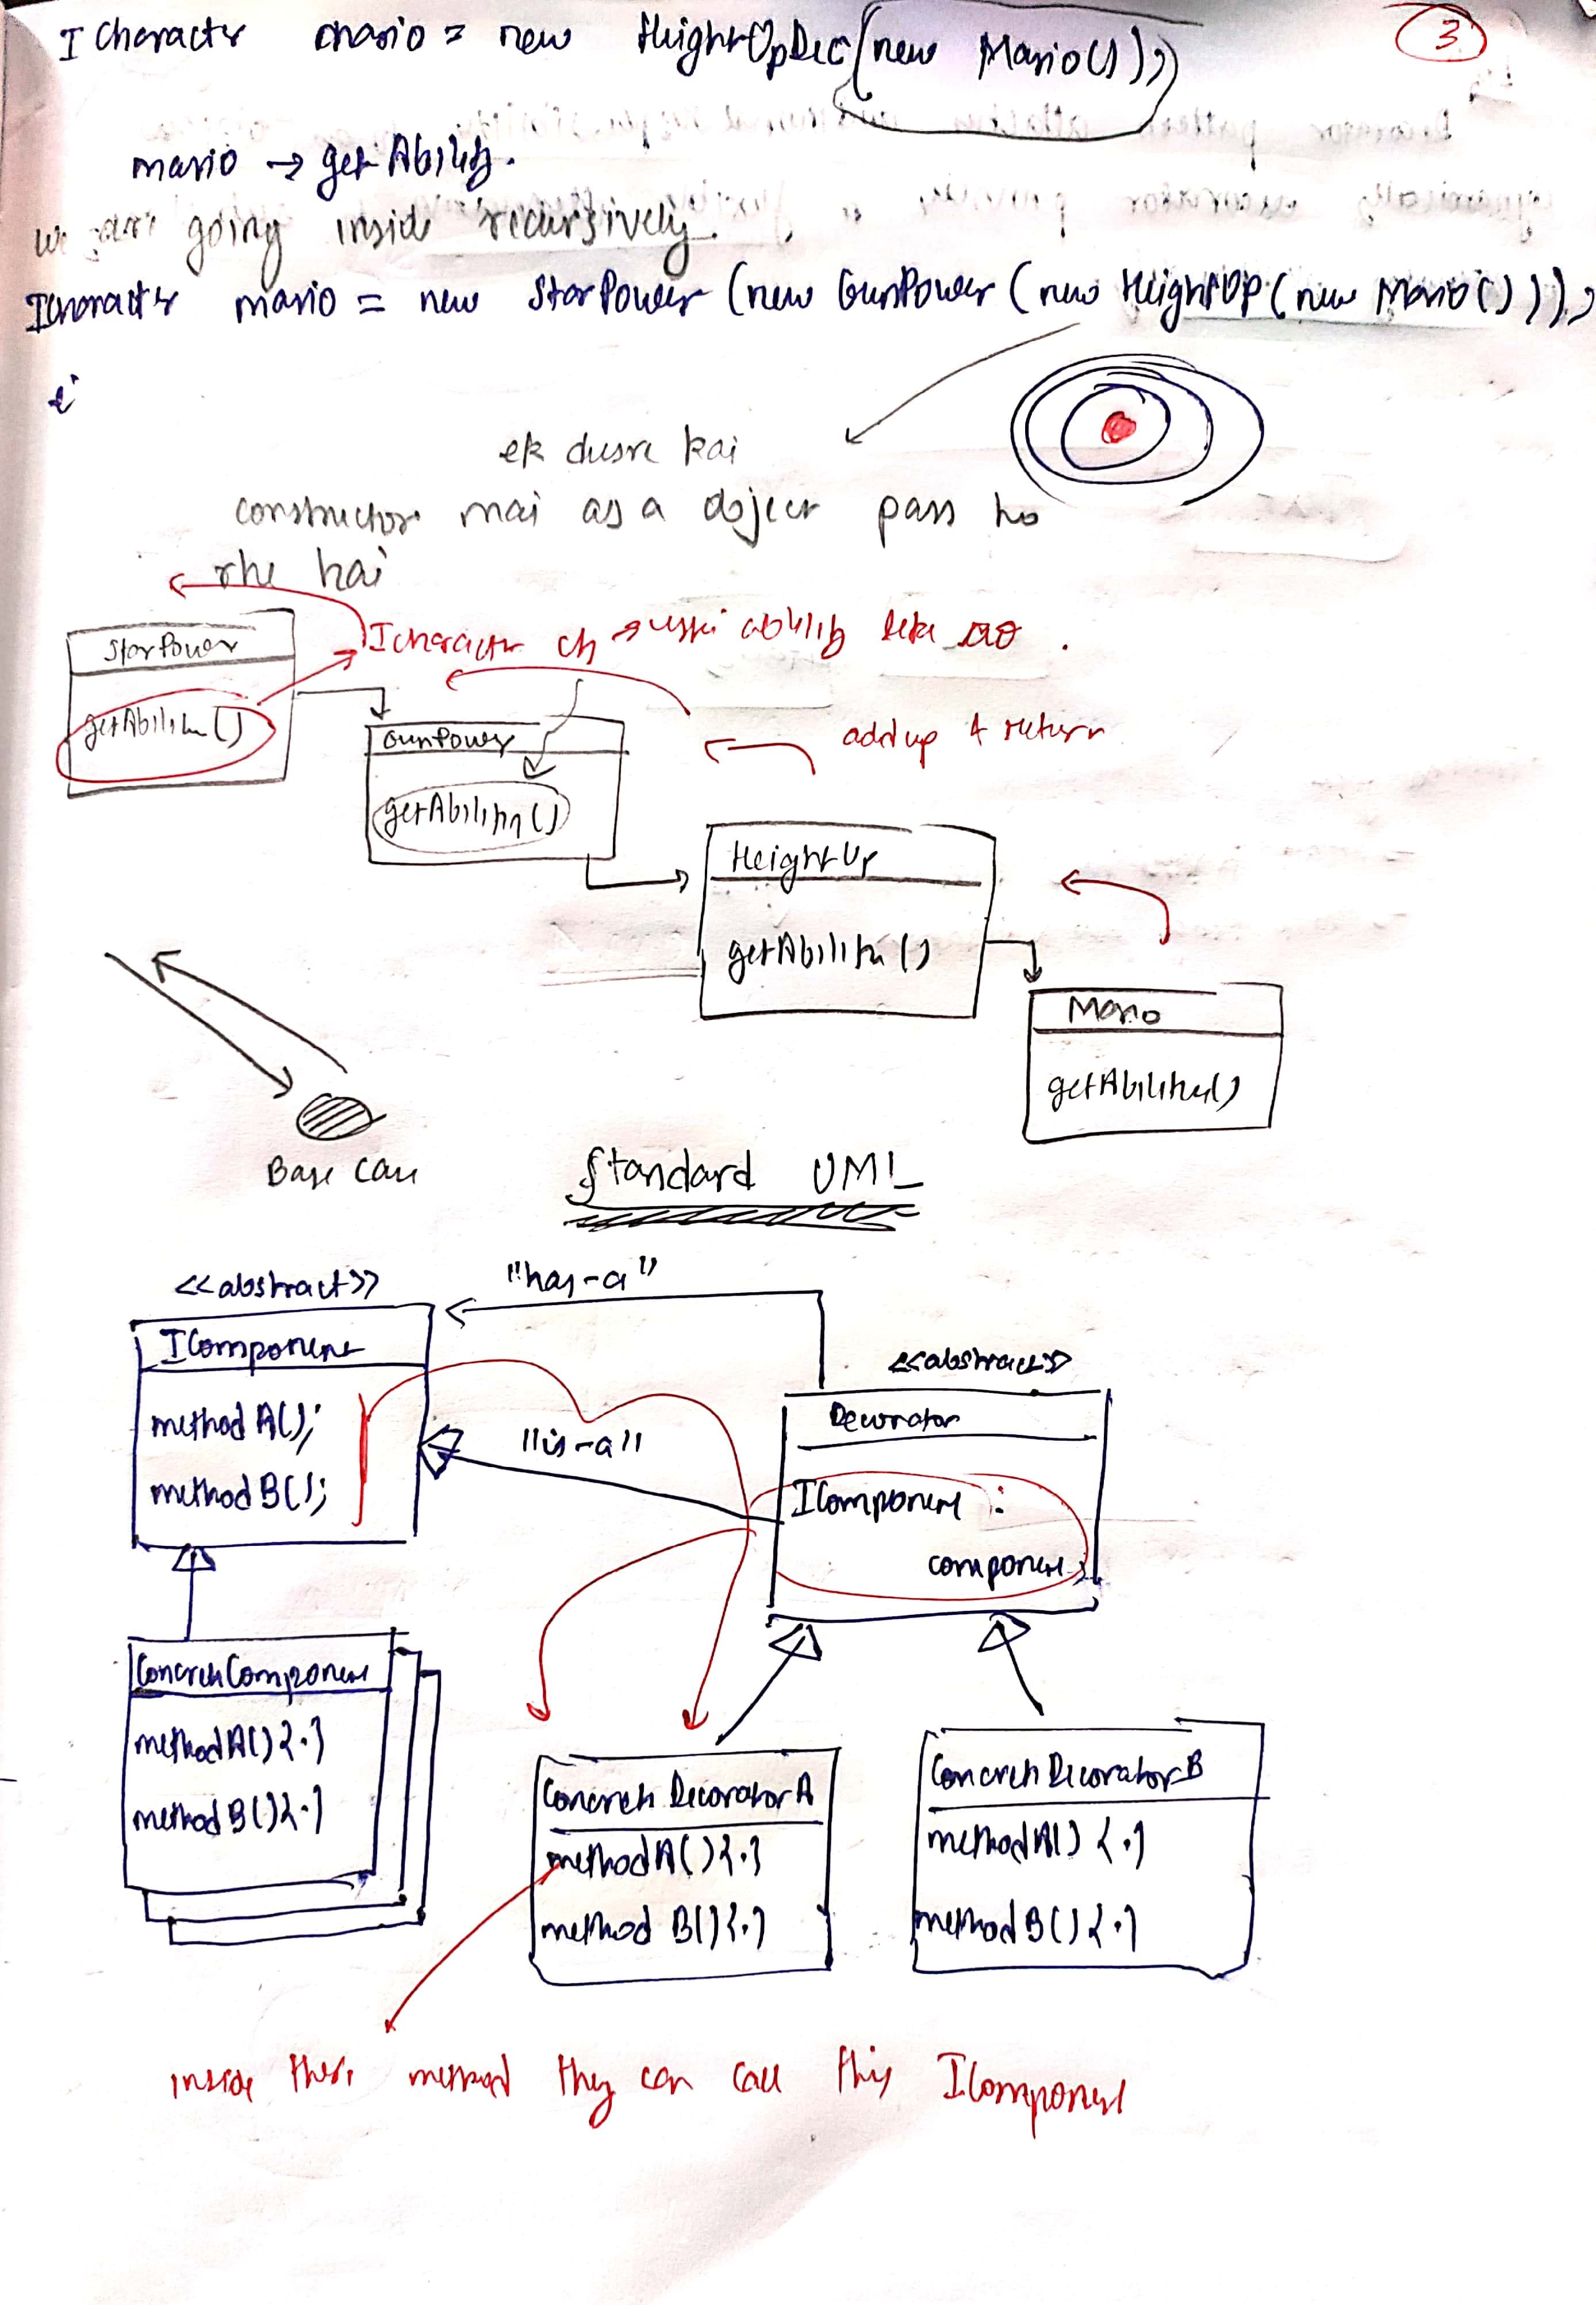 3
ICharacter mario = new HeightUpDec(new Mario());
mario → getAbility.
we are going inside recursively.
ICharacter mario = new StarPower (new GunPower (new HeightUp (new Mario())));
ek dusre kai
constructor mai as a object pass ho
rhe hai
StarPower
getAbilities()
ICharacter ch → uski ability leke ao.
GunPower
getAbilities()
add up & return
HeightUp
getAbilities()
Mario
getAbilities()
Base Case
Standard UML
<<abstract>>
"has-a"
IComponent
methodA();
methodB();
"is-a"
<<abstract>>
Decorator
IComponent :
component;
ConcreteComponent
methodA(){.}
methodB(){.}
Concrete DecoratorA
methodA(){.}
method B(){.}
Concrete DecoratorB
methodA(){.}
methodB(){.}
inside these method they can call this IComponent